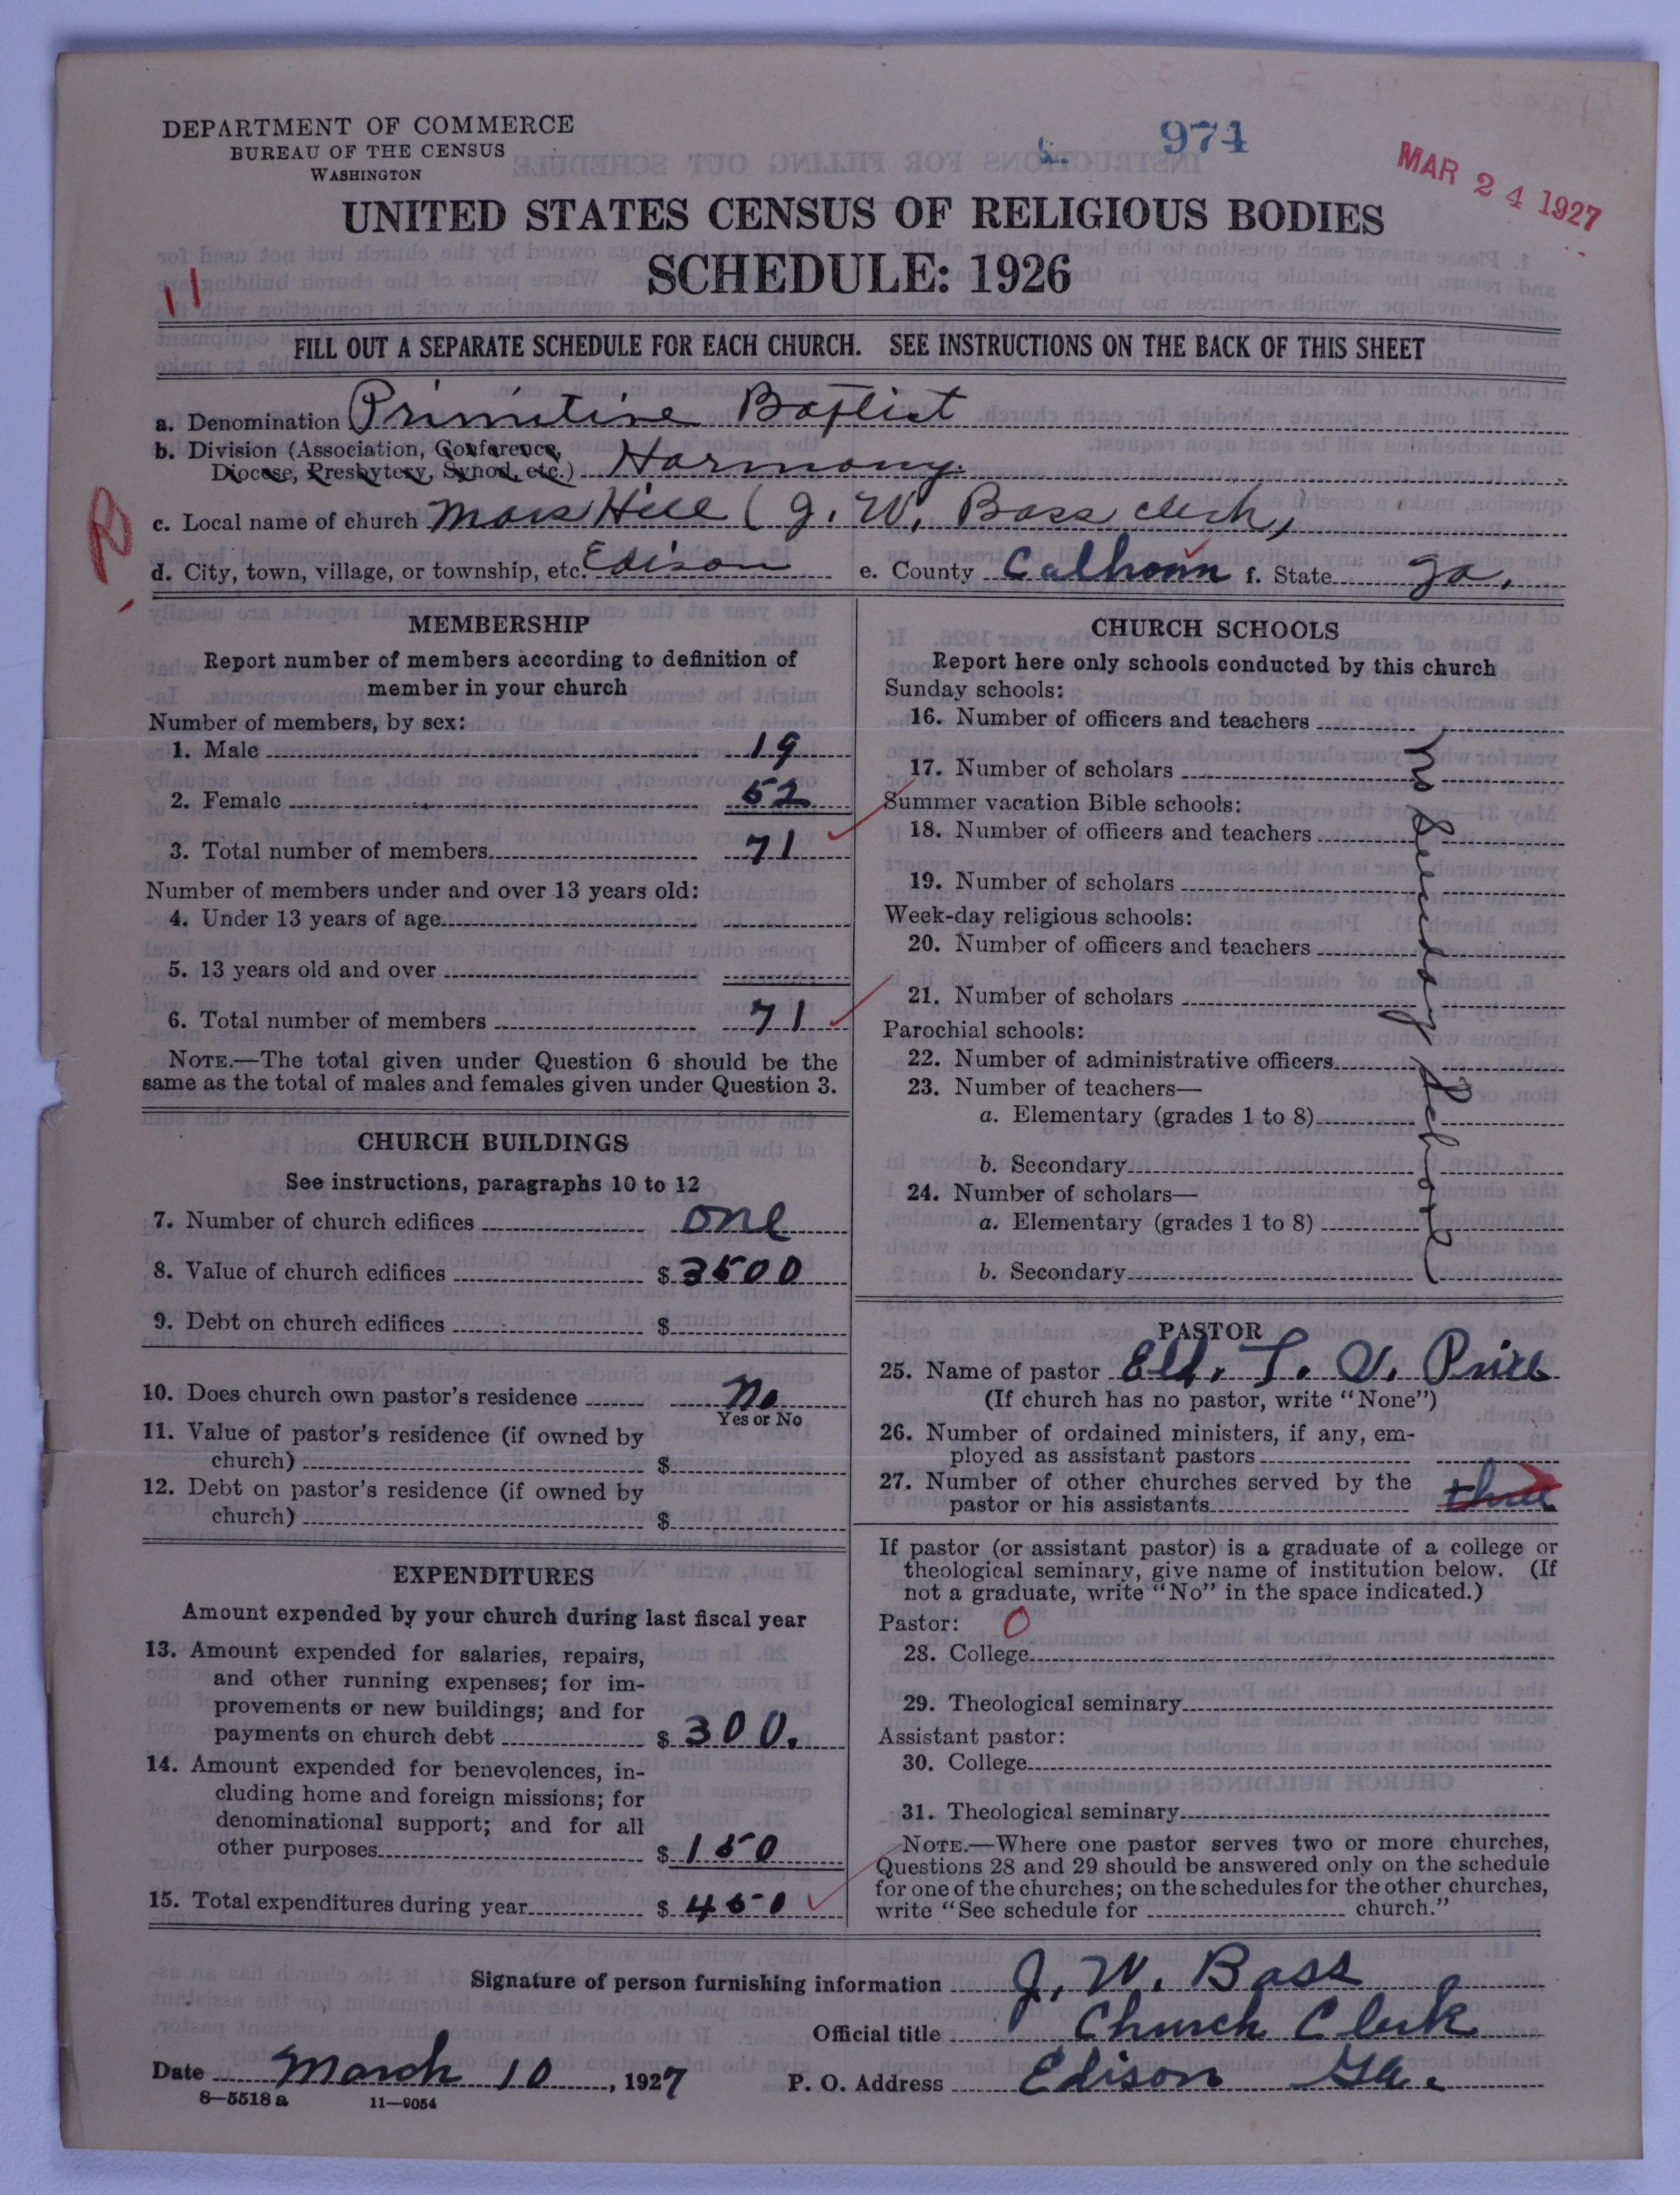 974
MAR 24 1927
DEPARTMENT OF COMMERCE
BUREAU OF THE CENSUS
WASHINGTON
UNITED STATES CENSUS OF RELIGIOUS BODIES
SCHEDULE: 1926
11
FILL OUT A SEPARATE SCHEDULE FOR EACH CHURCH. SEE INSTRUCTIONS ON THE BACK OF THIS SHEET
a. Denomination Primitive Baptist
b. Division (Association, Conference,
Diocese, Presbytery, Synod, etc.) Harmony.
c. Local name of church Mars Hill (J. W. Bass clerk)
d. City, town, village, or township, etc. Edison e. County Calhoun f. State Ga.
MEMBERSHIP
Report number of members according to definition of
member in your church
Number of members, by sex:
1. Male 19
2. Female 52
3. Total number of members 71
Number of members under and over 13 years old:
4. Under 13 years of age
5. 13 years old and over
6. Total number of members 71
NOTE.—The total given under Question 6 should be the
same as the total of males and females given under Question 3.
CHURCH BUILDINGS
See instructions, paragraphs 10 to 12
7. Number of church edifices one
8. Value of church edifices $ 3500
9. Debt on church edifices $
10. Does church own pastor's residence No
Yes or No
11. Value of pastor's residence (if owned by
church) $
12. Debt on pastor's residence (if owned by
church) $
EXPENDITURES
Amount expended by your church during last fiscal year
13. Amount expended for salaries, repairs,
and other running expenses; for im-
provements or new buildings; and for
payments on church debt $ 300.
14. Amount expended for benevolences, in-
cluding home and foreign missions; for
denominational support; and for all
other purposes $ 150
15. Total expenditures during year $ 450
CHURCH SCHOOLS
Report here only schools conducted by this church
Sunday schools:
16. Number of officers and teachers
17. Number of scholars
Summer vacation Bible schools:
18. Number of officers and teachers
19. Number of scholars
Week-day religious schools:
20. Number of officers and teachers
21. Number of scholars
Parochial schools:
22. Number of administrative officers
23. Number of teachers—
a. Elementary (grades 1 to 8)
b. Secondary
24. Number of scholars—
a. Elementary (grades 1 to 8)
b. Secondary
No Sunday School
PASTOR
25. Name of pastor Eld. T. V. Price
(If church has no pastor, write "None")
26. Number of ordained ministers, if any, em-
ployed as assistant pastors
27. Number of other churches served by the
pastor or his assistants three
If pastor (or assistant pastor) is a graduate of a college or
theological seminary, give name of institution below. (If
not a graduate, write "No" in the space indicated.)
Pastor: 0
28. College
29. Theological seminary
Assistant pastor:
30. College
31. Theological seminary
NOTE.—Where one pastor serves two or more churches,
Questions 28 and 29 should be answered only on the schedule
for one of the churches; on the schedules for the other churches,
write "See schedule for church."
Signature of person furnishing information J. W. Bass
Official title Church Clerk
Date March 10, 1927 P. O. Address Edison Ga.
8—5518 a 11—9054